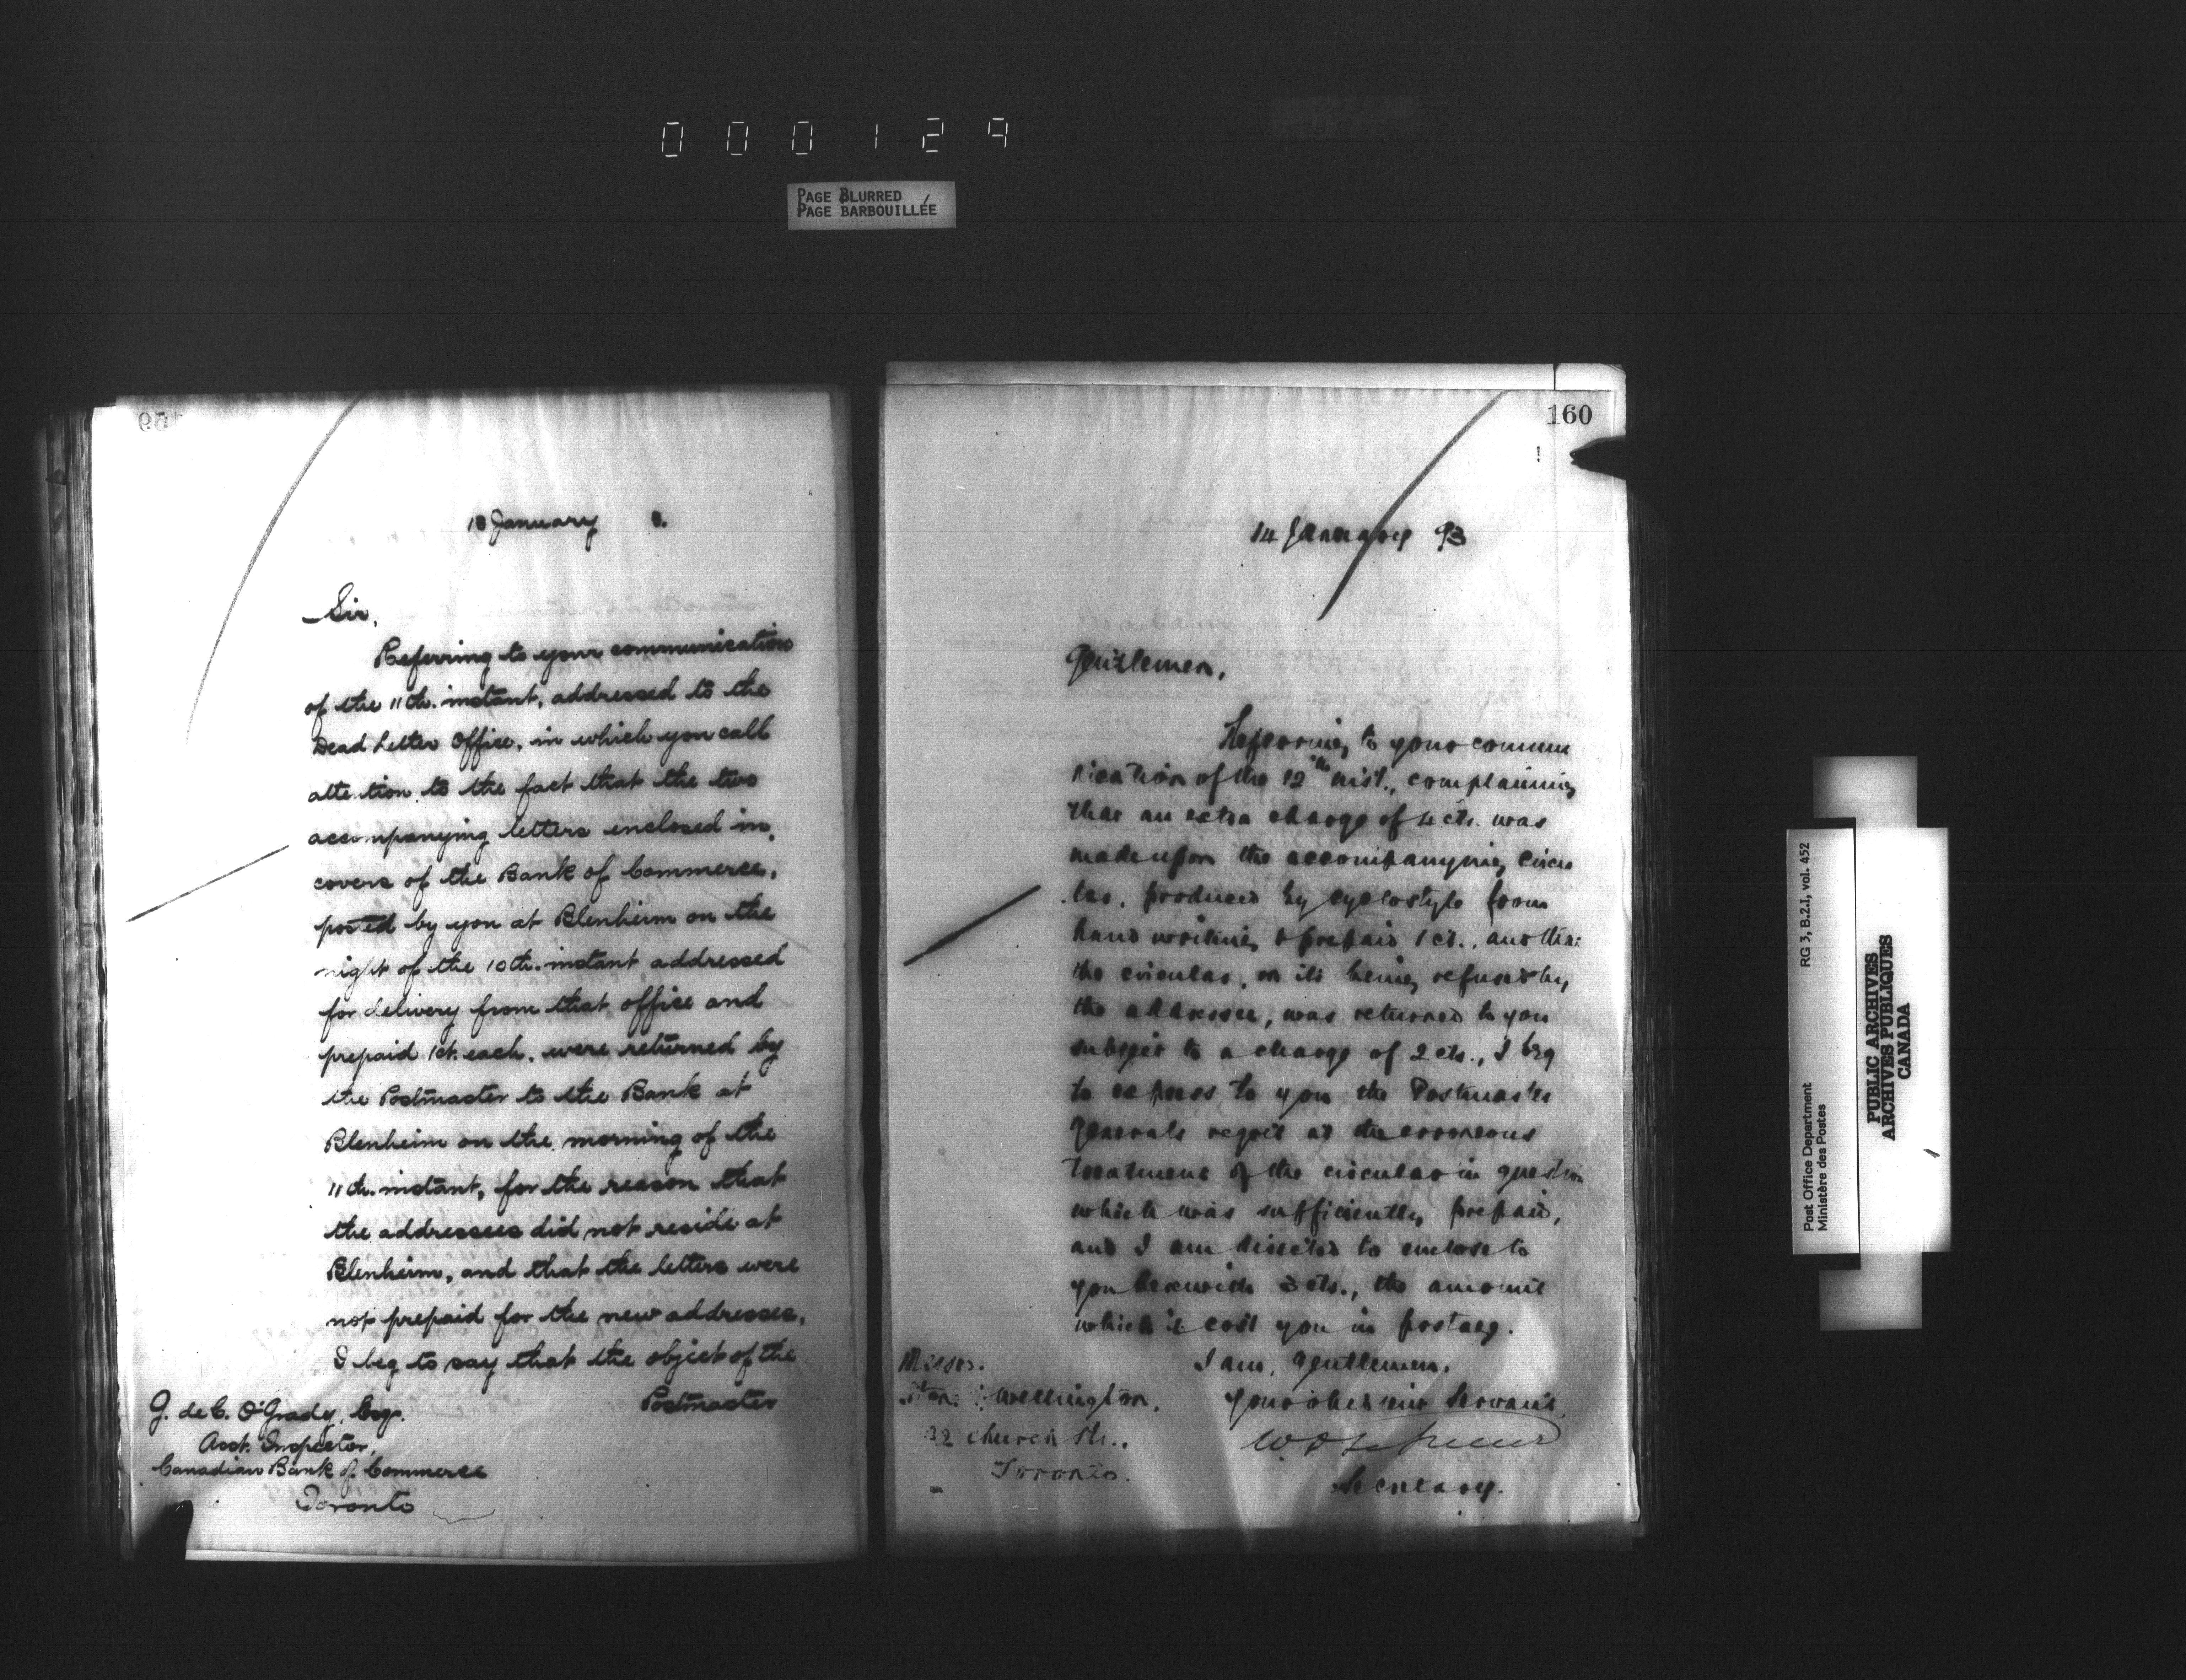 000129
PAGE BLURRED
PAGE BARBOUILLÉE
18 January
Sir,
Referring to your communication
of the 11th. instant, addressed to the
Dead Letter Office, in which you call
attention to the fact that the two
accompanying letters enclosed in
covers of the Bank of Commerce,
posted by you at Blenheim on the
night of the 10th. instant addressed
for delivery from that office and
prepaid 1ct. each, were returned by
the Postmaster to the Bank at
Blenheim on the morning of the
11th. instant, for the reason that
the addressees did not reside at
Blenheim, and that the letters were
not prepaid for the new addresses,
I beg to say that the object of the
Postmaster
G. de C. O'Grady, Esq.
Asst. Inspector,
Canadian Bank of Commerce
Toronto
160
14 January 93
Gentlemen,
Referring to your commu
nication of the 12th inst., complaining
that an extra charge of 4 cts. was
made upon the accompanying circu
lar, produced by cyclostyle from
hand writing & prepaid 1 ct., and that
the circular, on its being refused by
the addressee, was returned to you
subject to a charge of 2 cts., I beg
to express to you the Postmaster
Generals regret at the erroneous
treatment of the circular in question
which was sufficiently prepaid,
and I am directed to enclose to
you herewith 3 cts., the amount
which it cost you in postage.
I am, Gentlemen,
Your obedient Servant
Secretary.
Messrs.
Wellington,
32 Church St.,
Toronto.
Post Office Department
Ministère des Postes
RG 3, B.2.I, vol. 452
PUBLIC ARCHIVES
ARCHIVES PUBLIQUES
CANADA